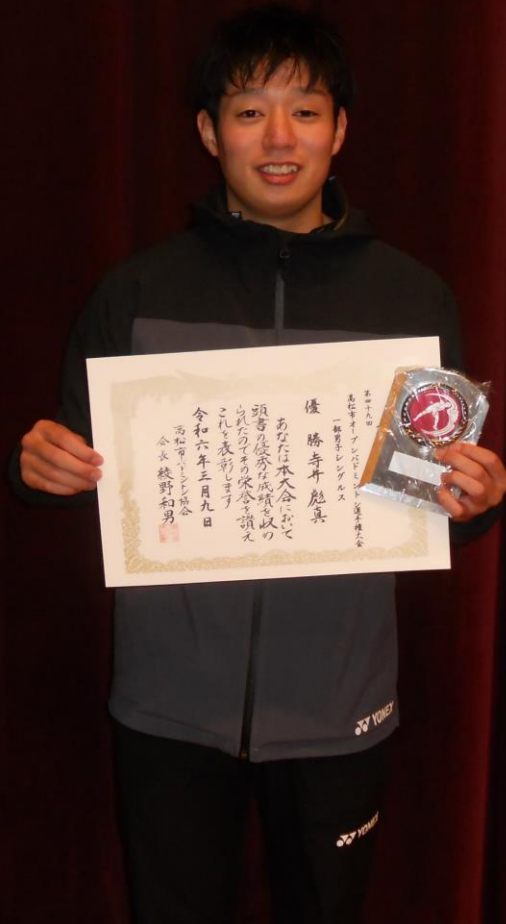 第四十九回
高松市オープンバドミントン選手権大会
一部男子シングルス
優勝 寺井彪真
あなたは本大会において
頭書の優秀な成績を収め
られたのでその栄誉を讃え
これを表彰します
令和六年三月九日
高松市バドミントン協会
会長 綾野和男
YONEX
YONEX